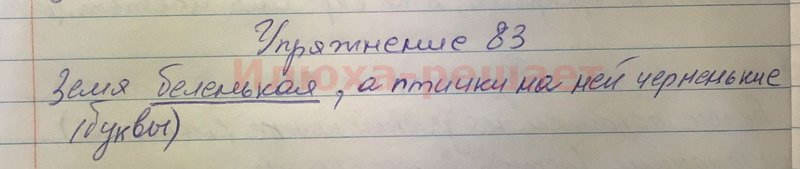 Упражнение 83
Земя беленькая, а птички на ней черненькие
(буквы)
Илюха-решает